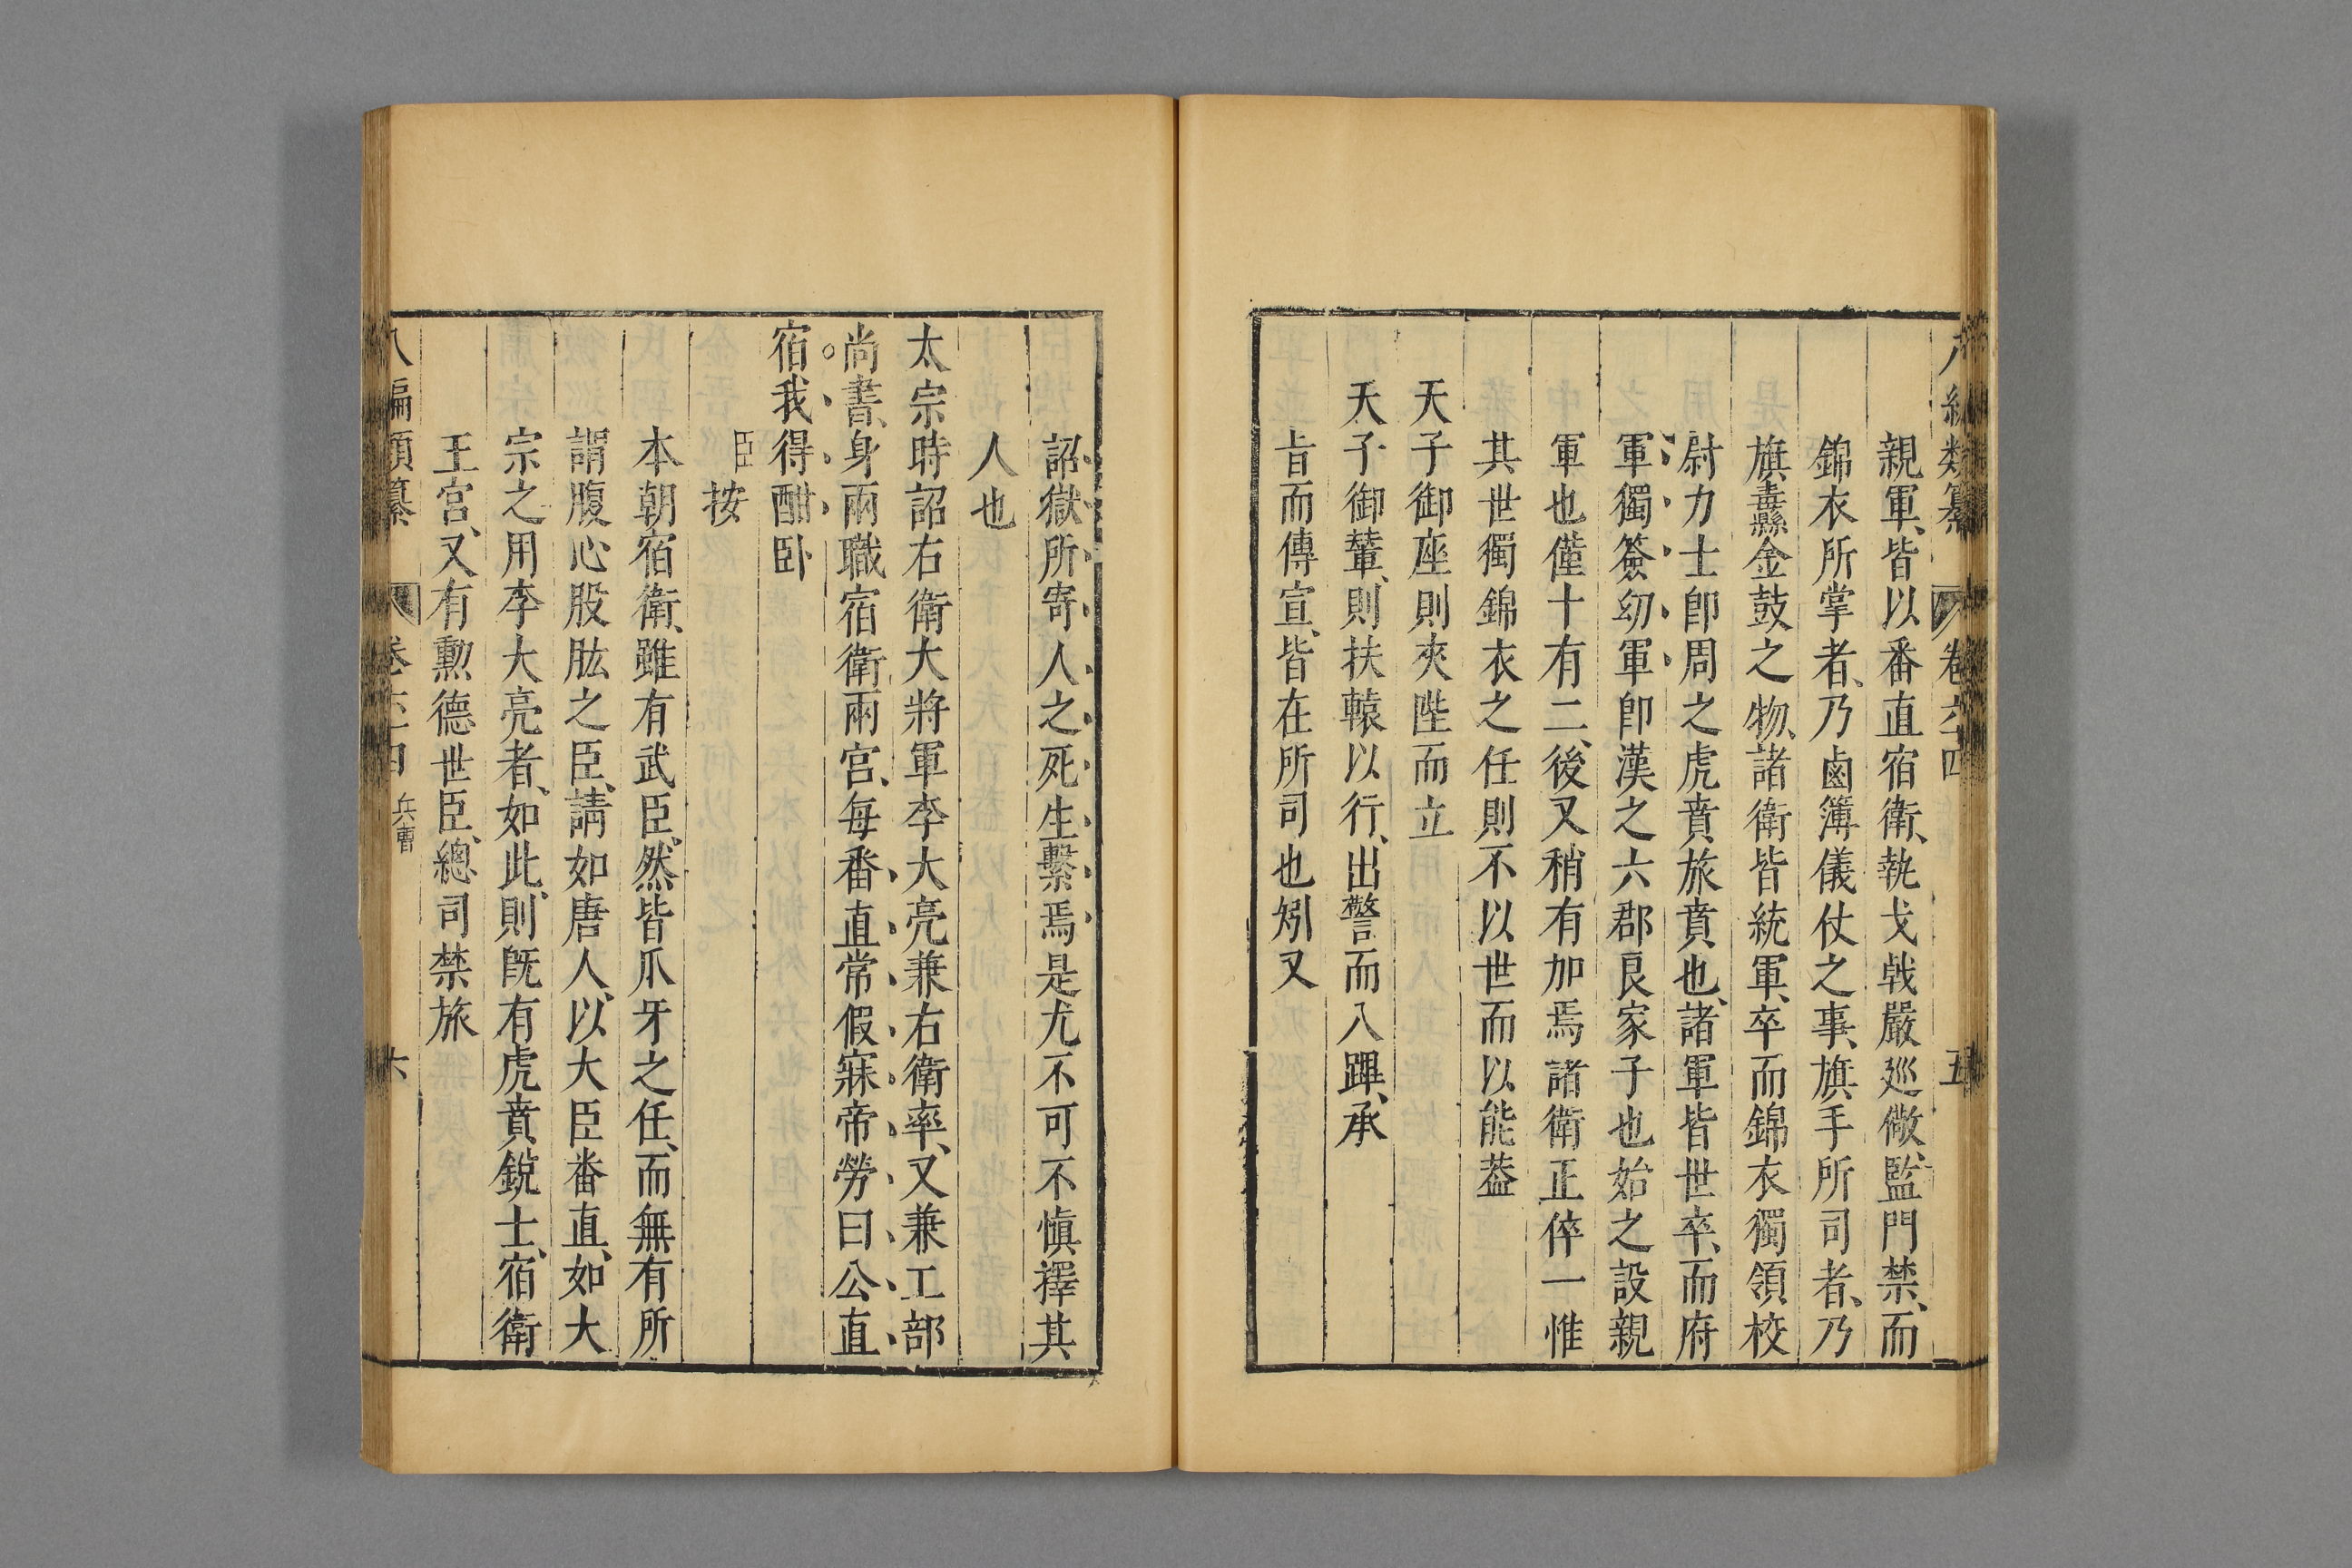 親軍、皆以番直宿衛、執戈戟嚴巡儆、監門禁、而
錦衣所掌者、乃鹵簿儀仗之事、旗手所司者、乃
旗纛金鼓之物、諸衛皆統軍、卒而錦衣獨領校
尉力士卽周之虎賁旅賁也、諸軍皆世卒、而府
軍獨簽幼軍卽漢之六郡良家子也始之設親
軍也僅十有二、後又稍有加焉諸衛正倅一惟
其世獨錦衣之任則不以世而以能葢
天子御座則夾陛而立
天子御輦、則扶轅以行、出警而入蹕、承
旨而傳宣、皆在所司也矧又
詔獄所寄人之死生繫焉是尤不可不慎擇其
人也
太宗時詔右衛大將軍李大亮兼右衛率、又兼工部
尚書、身兩職宿衛兩宮、每番直常假寐帝勞曰公直
宿我得酣卧
臣按
本朝宿衛、雖有武臣、然皆爪牙之任、而無有所
謂腹心股肱之臣、請如唐人、以大臣畨直、如大
宗之用李大亮者、如此、則旣有虎賁銳士、宿衛
王宮、又有勲德世臣、總司禁旅
八編類纂 卷 兵曹 六